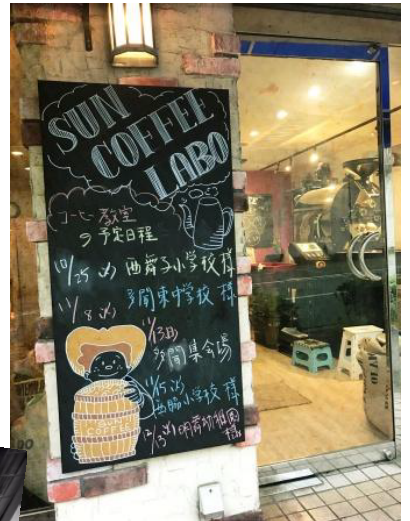 SUN
COFFEE
LABO
コーヒー教室
の予定日程
10/25 (水) 西舞子小学校 様
11/8 (水) 多聞東中学校 様
11/13
多聞集会場
11/15 (水)
西脇小学校 様
12/13 (水) 明舞幼稚園
様
COFFEE